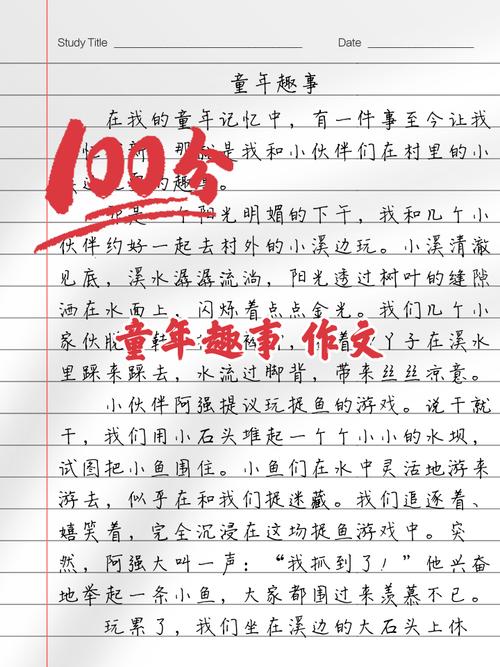 Study Title
Date
童年趣事
在我的童年记忆中，有一件事至今让我
100分
是我和小伙伴们在村里的小
的趣事。
个阳光明媚的下午，我和几个小
伙伴约好一起去村外的小溪边玩。小溪清澈
见底，溪水潺潺流淌，阳光透过树叶的缝隙
洒在水面上，闪烁着点点金光。我们几个小
家伙脱
丫子在溪水
童年趣事 作文
里踩来踩去，水流过脚背，带来丝丝凉意。
小伙伴阿强提议玩捉鱼的游戏。说干就
干，我们用小石头堆起一个个小小的水坝，
试图把小鱼围住。小鱼们在水中灵活地游来
游去，似乎在和我们捉迷藏。我们追逐着、
嬉笑着，完全沉浸在这场捉鱼游戏中。突
然，阿强大叫一声：“我抓到了！”他兴奋
地举起一条小鱼，大家都围过来羡慕不已。
玩累了，我们坐在溪边的大石头上休